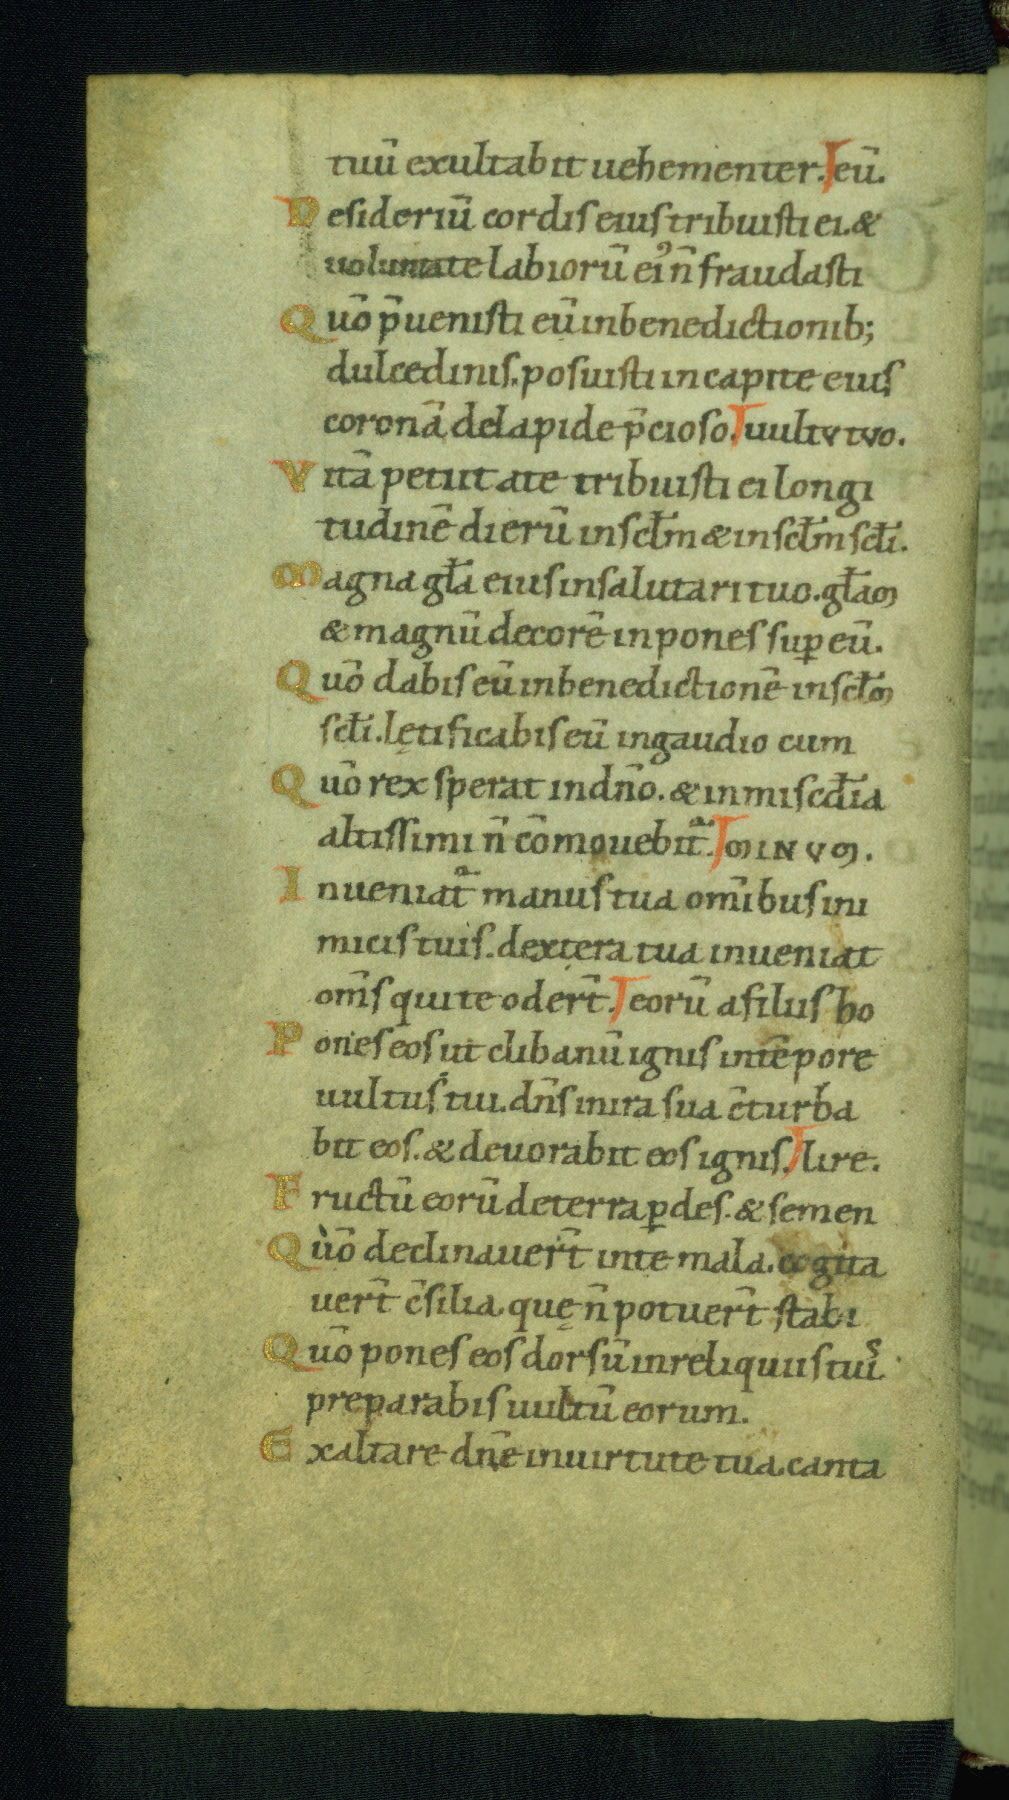 tuū exultabit uehementer. eū.
Desideriū cordis eius tribuisti ei. &
uoluntate labiorū ei᾽ n̄ fraudasti
Quō p̄uenisti eū in benedictionib;
dulcedinis. posuisti in capite eius
coronā de lapide p̄cioso. uultu tuo.
Vitā petiit a te tribuisti ei longi
tudinē dierū in sclm̄ & in sclm̄ scli̅.
Magna gl̄a eius in salutari tuo. gl̄am
& magnū decorē inpones sup̱ eū.
Quō dabis eū in benedictionē in scl̄m
scl̄i. lętificabis eū in gaudio cum
Quō rex sperat in dn̄o. & in miscd̄ia
altissimi n̄ cōmouebit̄ᵃ. MINUM.
Inueniat̄ᵃ manus tua om̄ibus ini
micis tuis. dextera tua inueniat
om̄s qui te oder̄t. eorū a filiis ho
Pones eos ut clibanū ignis in tēpore
uultus tui. dn̄s in ira sua c̄turba
bit eos. & deuorabit eos ignis. lire.
Fructū eorū de terra p̱des. & semen
Quō declinauer̄t in te mala. cogita
uer̄t c̄silia. quę n̄ potuer̄t stabi
Quō pones eos dorsū in reliquiis tuis
preparabis uultū eorum.
Exaltare dn̄e in uirtute tua. canta